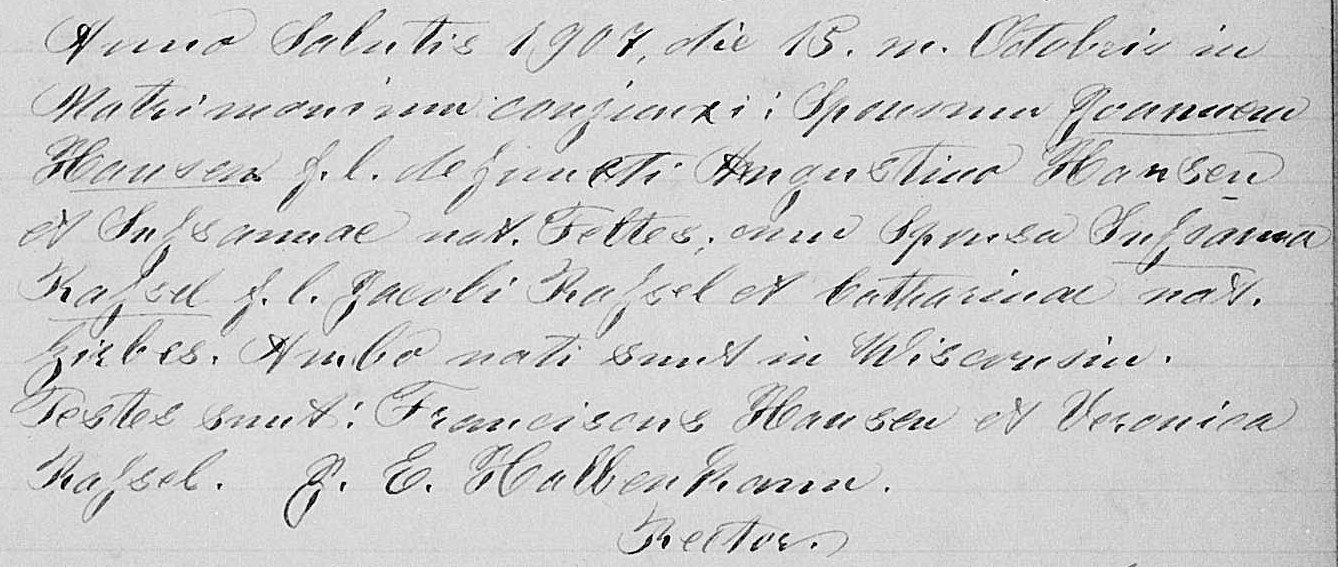 Anno Salutis 1907, die 15. m. Octobris in
Matrimonium conjunxi: Sponsum Joannem
Hansen f. l. defuncti Augustino Hansen
et Sußannae nat. Feltes, cum Sponsa Sußanna
Raßel f. l. Jacobi Raßel et Catharinae nat.
Zirbes. Ambo nati sunt in Wisconsin.
Testes sunt: Franciscus Hansen et Veronica
Raßel. J. E. Halbenkann.
Rector.